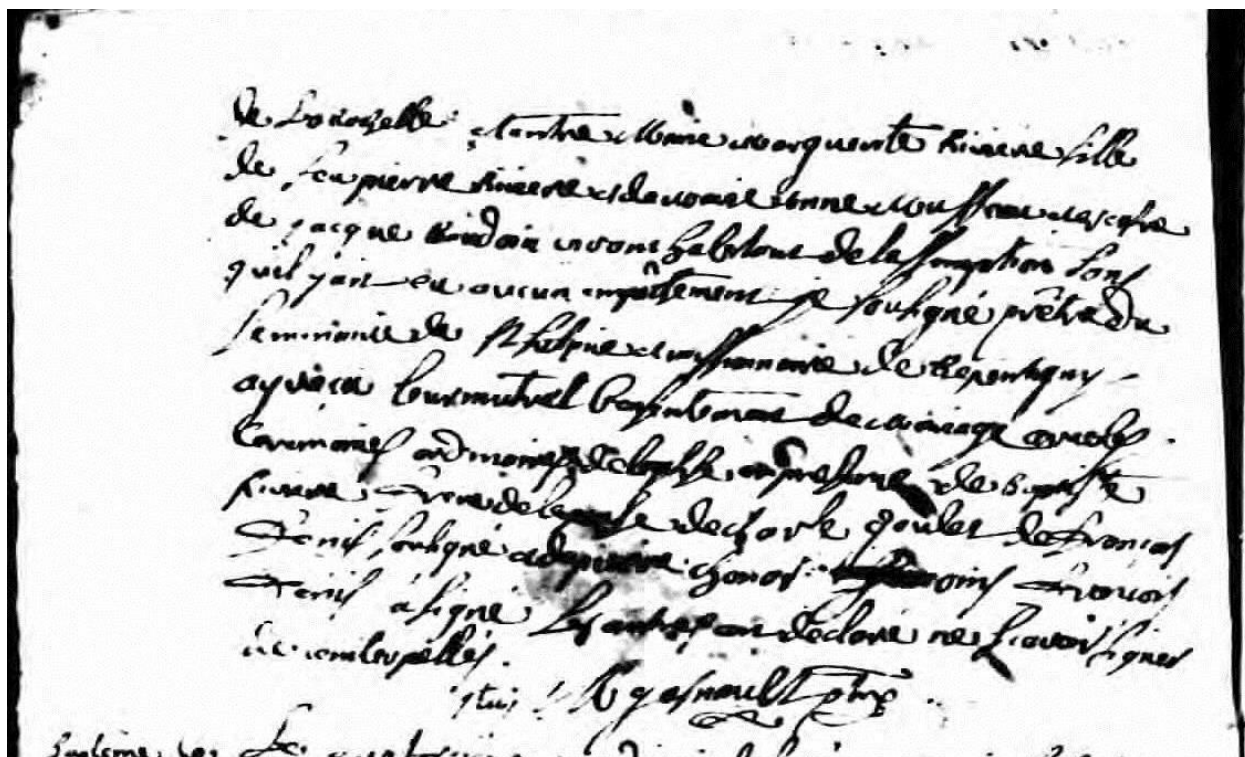 de La Rochelle et entre Marie Marguerite Riviere fille
de feu pierre Riviere et de marie anne Mousseau
de jacque Baudoin habitant de lassomption sans
quil y ait eu aucun empêchement je soussigné prêtre du
seminaire de St Sulpice missionnaire de Repentigny
ay reçu leur mutuel Consentement de mariage avec les
Ceremonies ordinaires de leglise en presence de baptiste
Riviere frere de lepouse de charle goulet de françois
Jenis soussigné et de pierre temoins françois
Jenis à signé les autres ont déclaré ne sçavoir signer
de ce interpellés.
ptre
Le